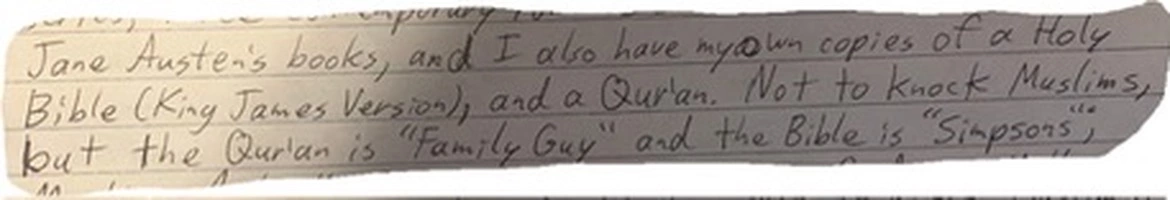 Jane Austen's books, and I also have my own copies of a Holy
Bible (King James Version), and a Qur'an. Not to knock Muslims,
but the Qur'an is "Family Guy" and the Bible is "Simpsons",